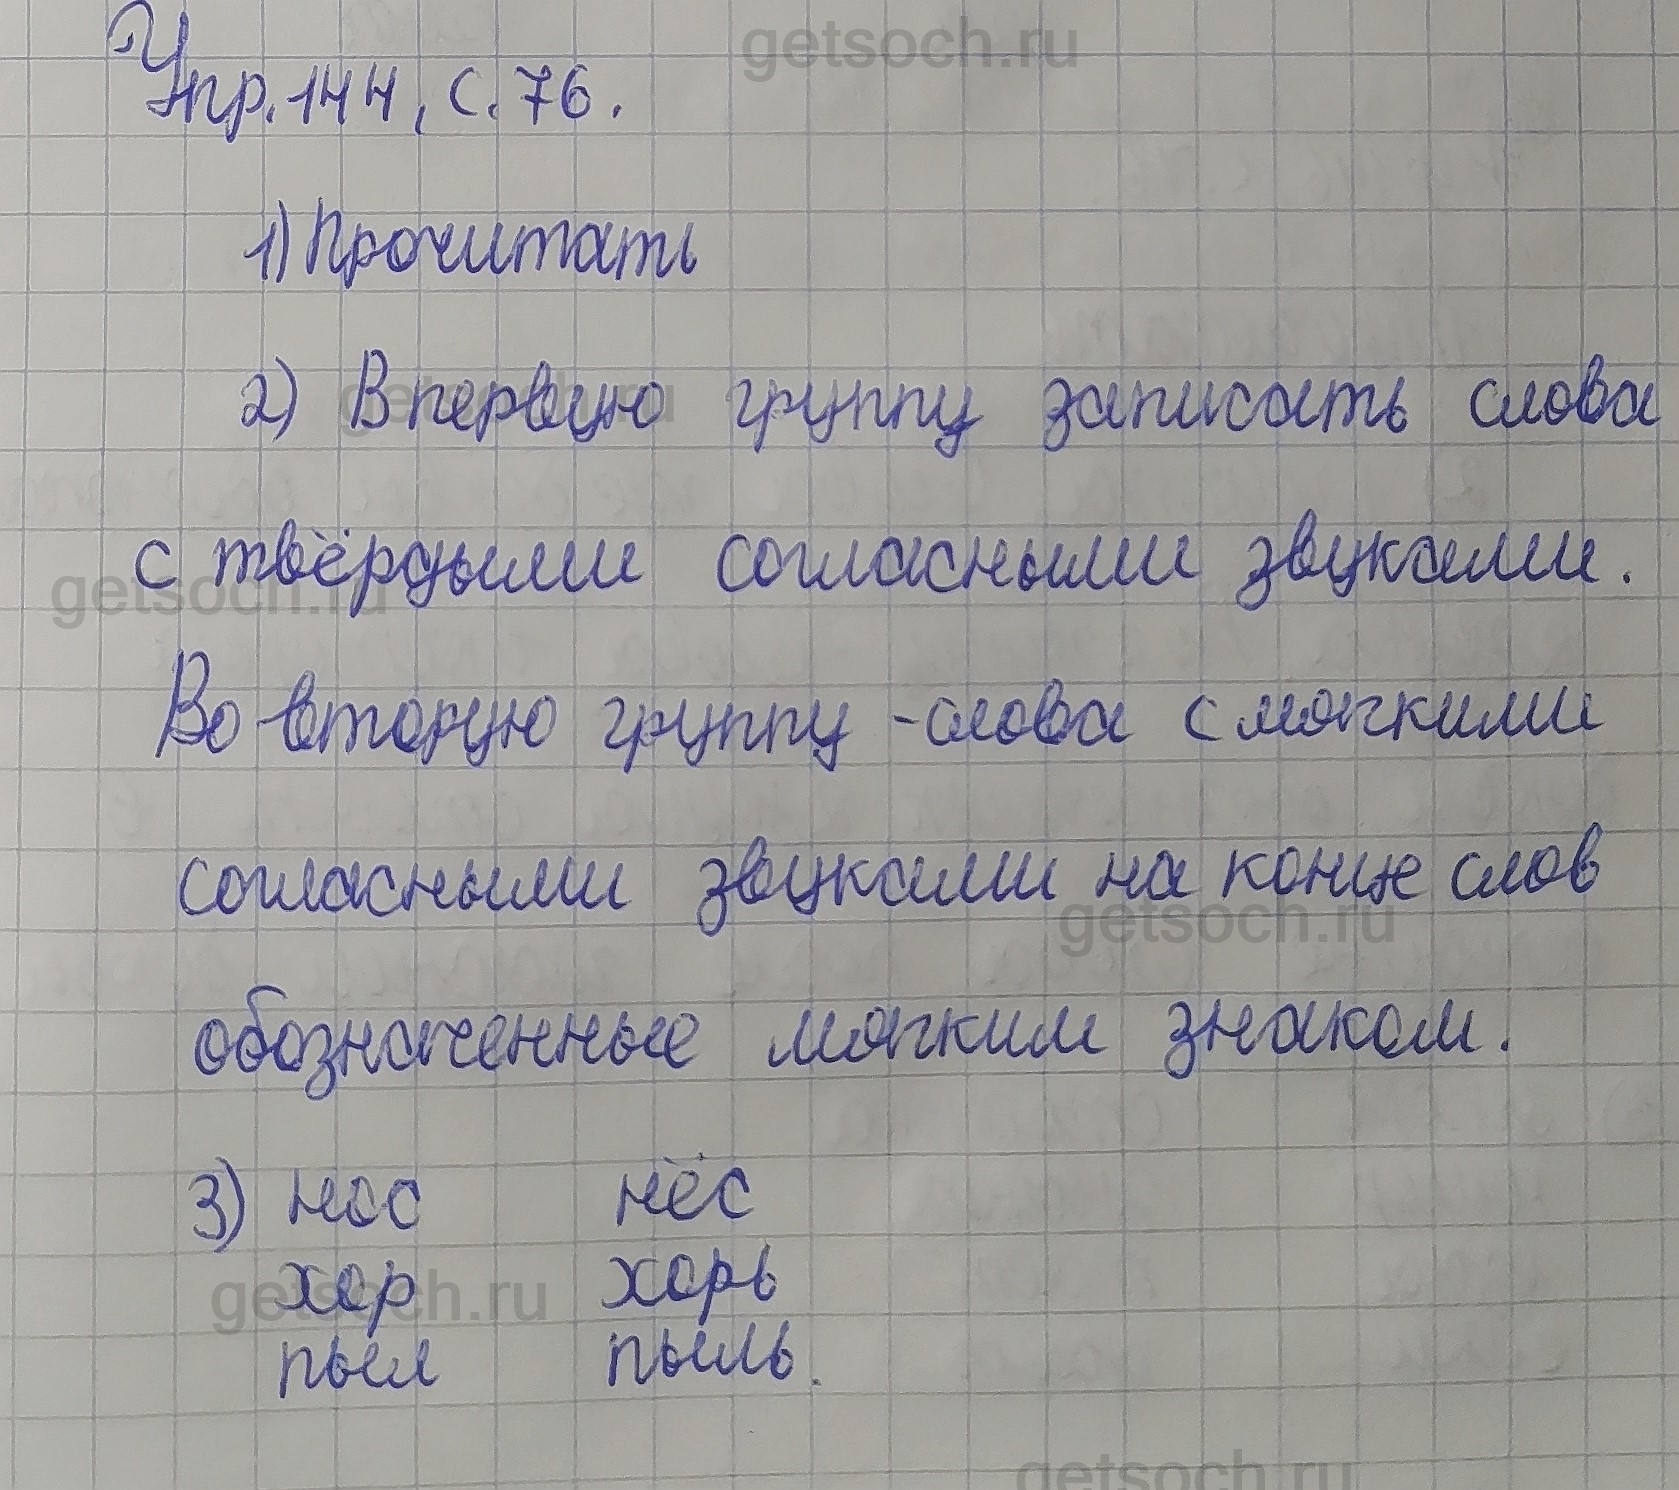 getsoch.ru
Упр. 144, с. 76.
1) Прочитать
2) В первую группу записать слова
getsoch.ru
с твёрдыми согласными звуками.
getsoch.ru
Во вторую группу - слова с мягкими
согласными звуками на конце слов
getsoch.ru
обозначенные мягким знаком.
3) нос нёс
хор хорь
getsoch.ru
пыл пыль.
getsoch.ru